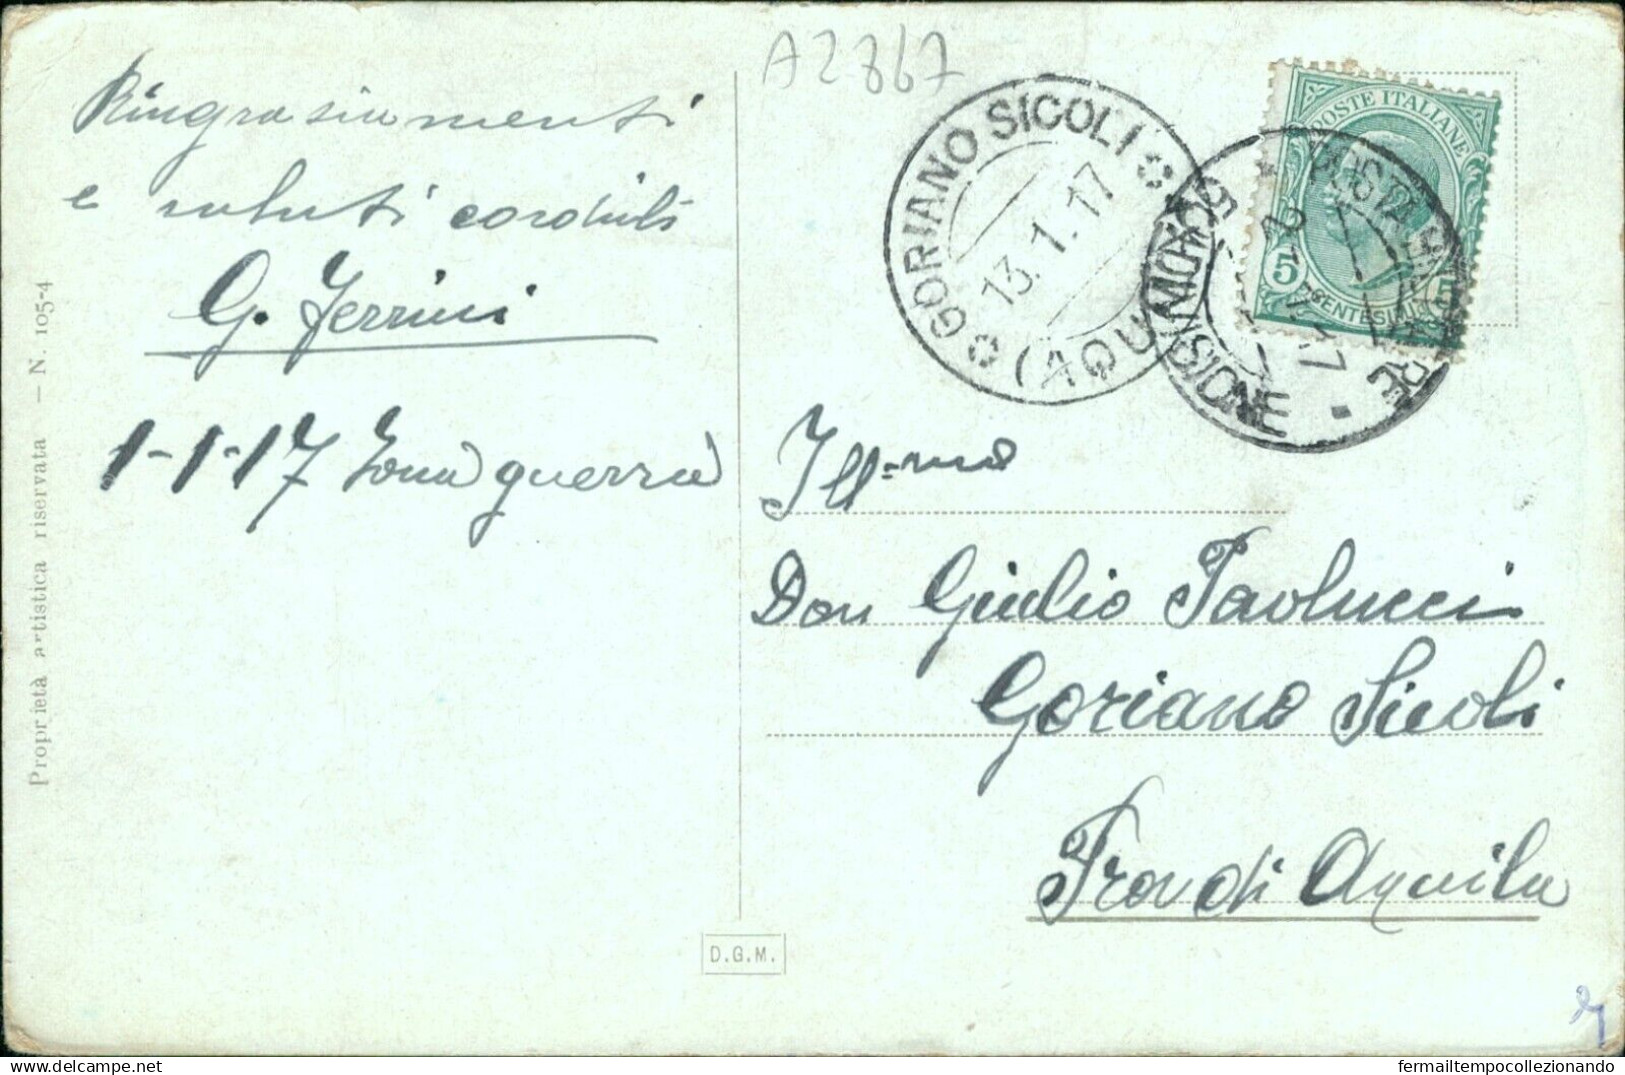 A2867
Ringraziamenti
e saluti cordiali
G. Ferrini
1-1-17 Zona guerra
Proprietà artistica riservata — N. 105-4
GORIANO SICOLI (AQUILA)
13.1.17
POSTA MILITARE
DIVISIONE
POSTE ITALIANE
5 CENTESIMI 5
Ill=mo
Don Giulio Paolucci
Goriano Sicoli
Prov di Aquila
D.G.M.
fermailtempocollezionando